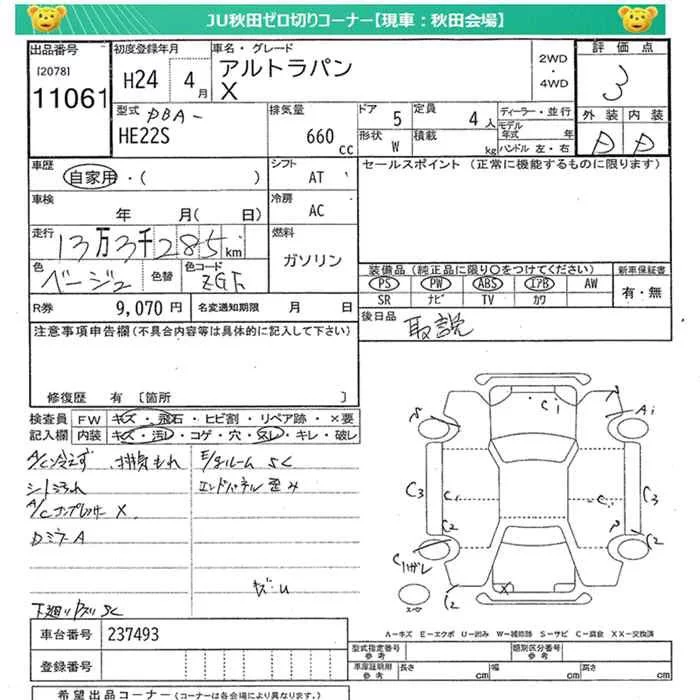 JU秋田ゼロ切りコーナー【現車:秋田会場】
出品番号
[2078]
11061
初度登録年月
H24 4月
車名・グレード
アルトラパン
X
2WD
・
4WD
評価点
3
型式 DBA-
HE22S
排気量
660cc
ドア 5
定員 4人
形状 W
積載 kg
ディーラー・並行
モデル年式 年
ハンドル 左・右
外装 内装
D D
車歴
自家用・( )
シフト
AT
セールスポイント (正常に機能するものに限ります)
車検
年 月( 日)
冷房
AC
走行
13万3千285km
燃料
ガソリン
色
ベージュ
色替
色コード
ZGF
装備品(純正品に限り○をつけてください)
新車保証書
PS PW ABS エアB AW
SR ナビ TV カワ
有・無
R券 9,070円
名変通知期限 月 日
後日品
取説
注意事項申告欄(不具合内容等は具体的に記入して下さい)
修復歴 有 [箇所 ]
検査員
記入欄
FW キズ・飛石・ヒビ割・リペア跡・×要
内装 キズ・汚レ・コゲ・穴・ヌレ・キレ・破レ
A/C冷えず
E/gルーム SC
エンドパネル 歪み
A/Cコンプレッサー X
DミラーA
キズ:U
下廻り
SC
C1
A1
C3
C1
C3
C2
C2
C2
X
スペア
A-キズ E-エクボ U-凹み W-補修跡 S-サビ C-腐食 XX-交換済
車台番号 237493
登録番号
型式指定番号
参考
類別区分番号
参考
車庫証明用
参考
長さ cm
幅 cm
高さ cm
希望出品コーナー(コーナーは各会場により異なります。)